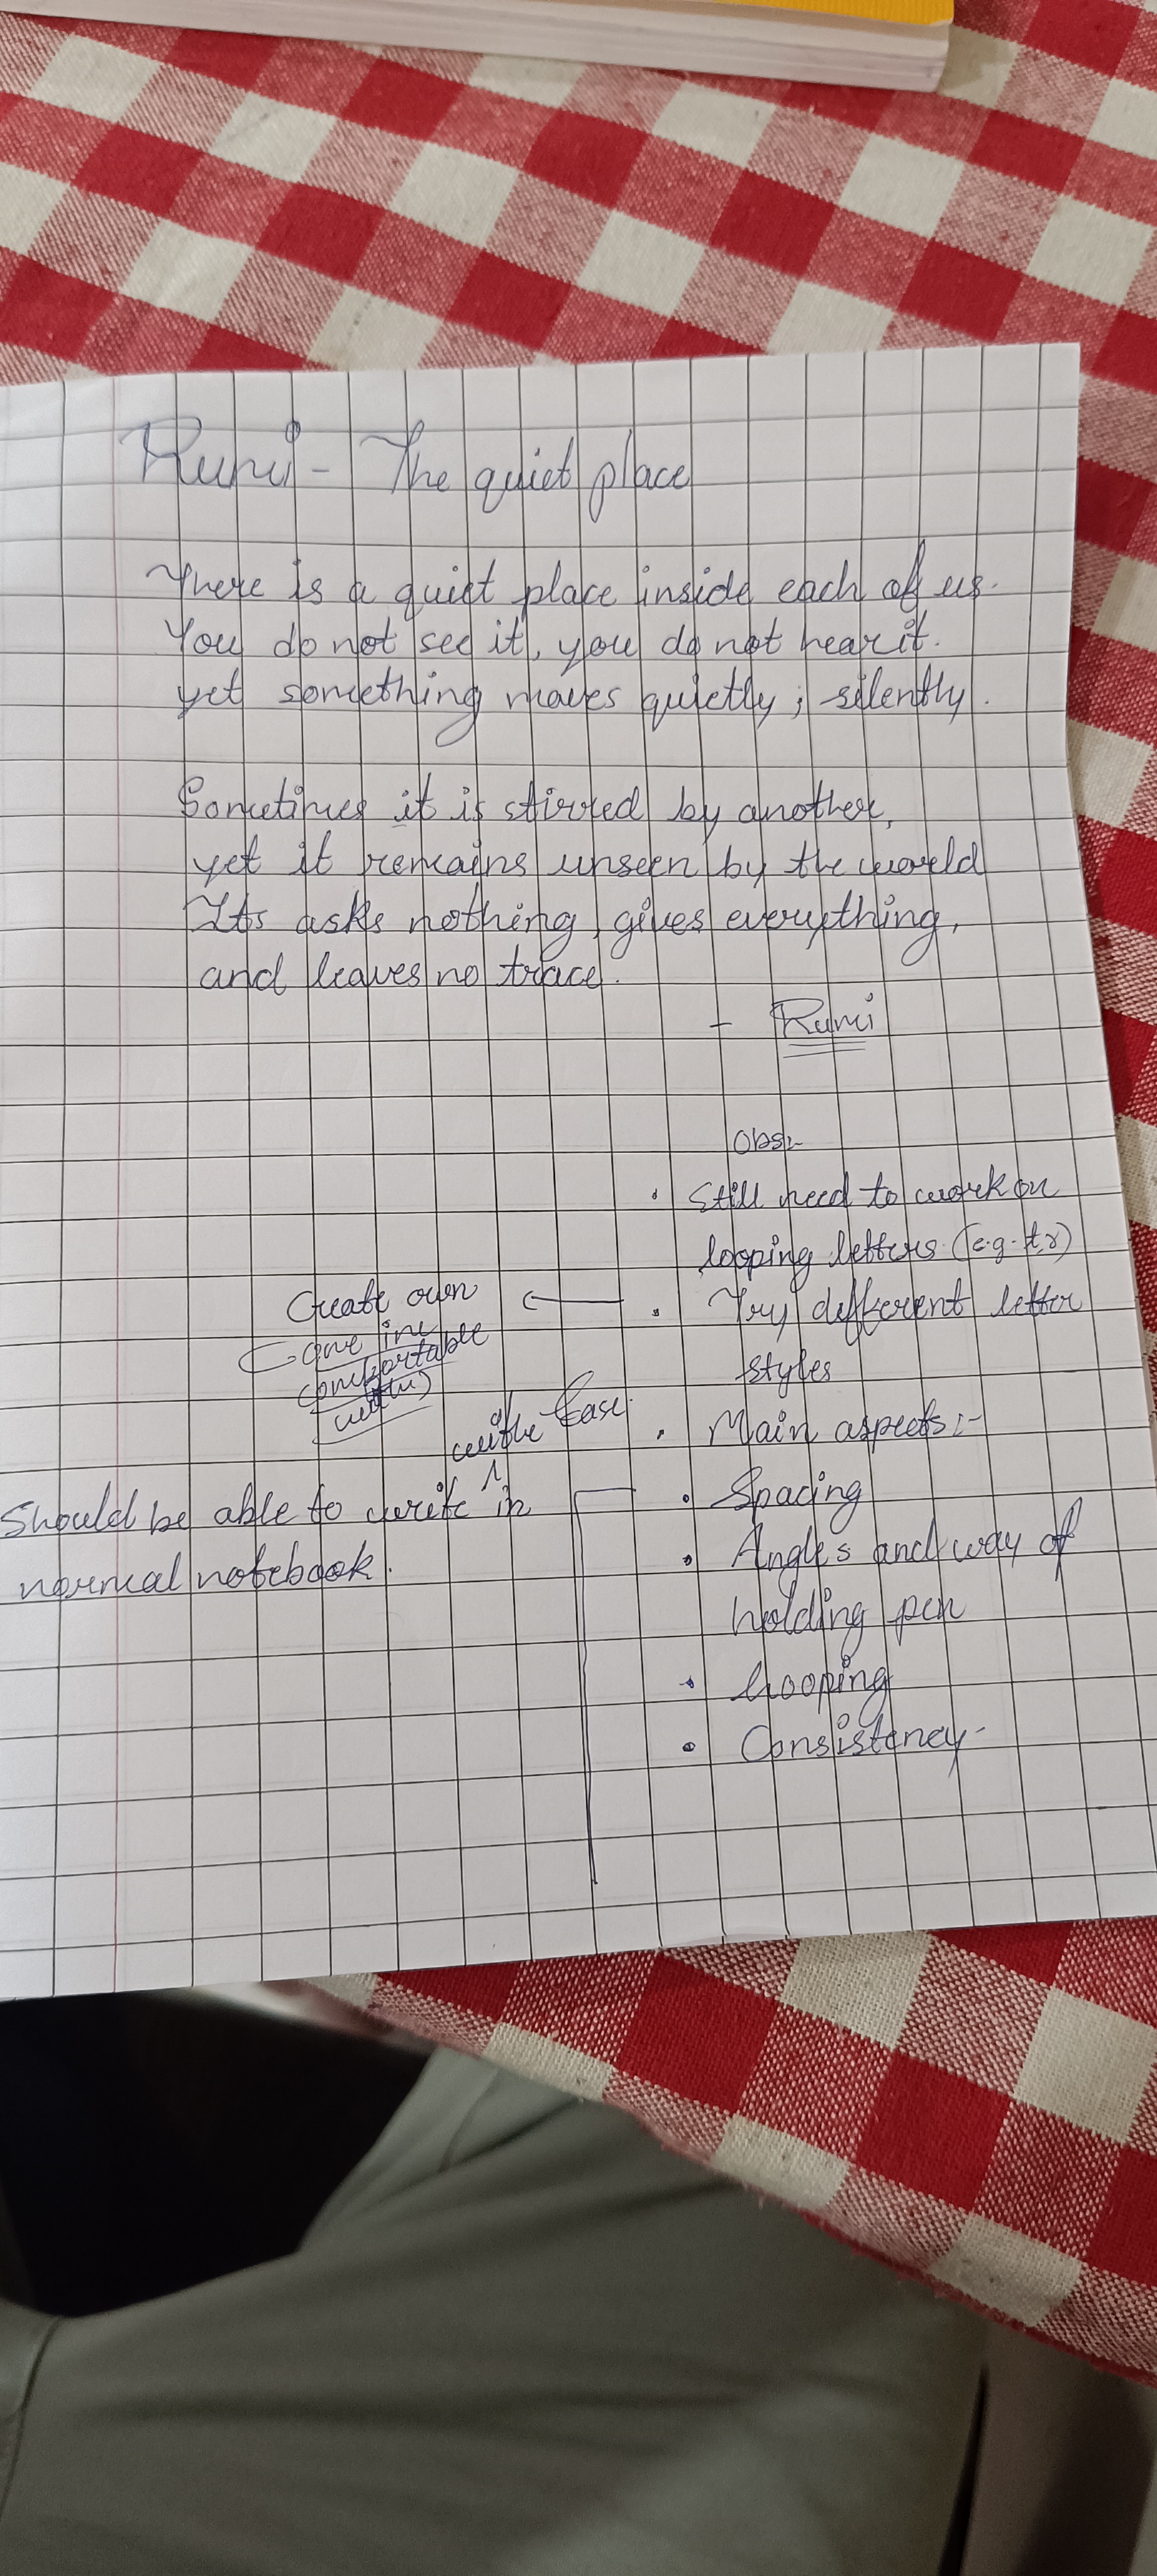 Rumi - The quiet place
There is a quiet place inside each of us.
You do not see it, you do not hear it.
yet something moves quietly, silently.
Sometimes it is stirred by another,
yet it remains unseen by the world
Its asks nothing, gives everything,
and leaves no trace.
- Rumi
Obs:-
• Still need to work on
looping letters (e.g. t, r)
• Try different letter
styles
Create own
(one im
comfortable
with)
• Main aspects:-
• Spacing
• Angles and way of
holding pen
• Looping
• Consistency
with Ease.
Should be able to write in
normal notebook.